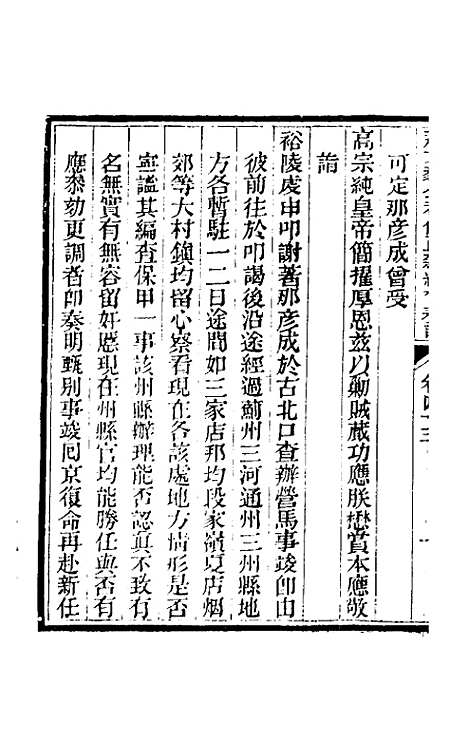 可定那彥成曾受
高宗純皇帝簡擢厚恩茲以勦賊蕆功應朕懋賞本應敬
詣
裕陵虔申叩謝著那彥成於古北口查辦營馬事竣卽由
彼前往於叩謁後沿途經過薊州三河通州三州縣地
方各暫駐一二日途間如三家店那均段家嶺夏店烟
郊等大村鎭均留心察看現在各該處地方情形是否
寧謐其編查保甲一事該州縣辦理能否認眞不致有
名無實有無容留奸慝現在州縣官均能勝任與否有
應叅劾更調者卽奏明甄別事竣回京復命再赴新任